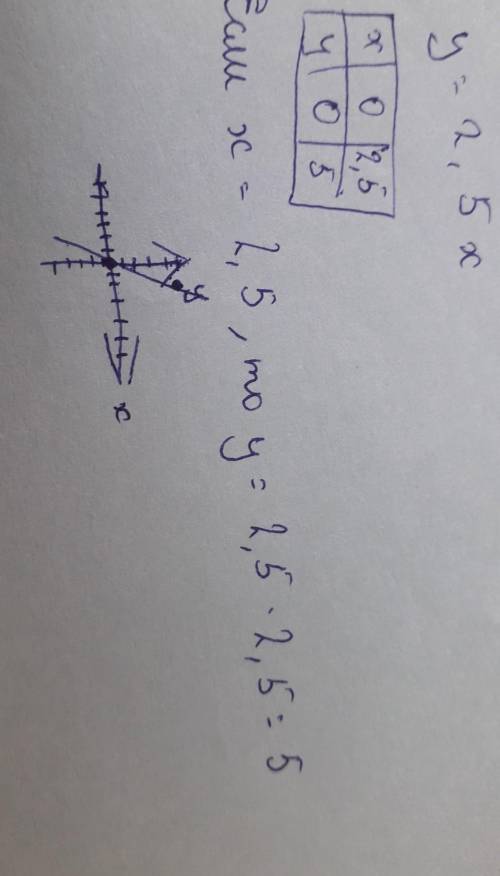 y = 2,5x
x 0 2,5
y 0 5
Если x = 2,5, то y = 2,5 · 2,5 = 5
y
x